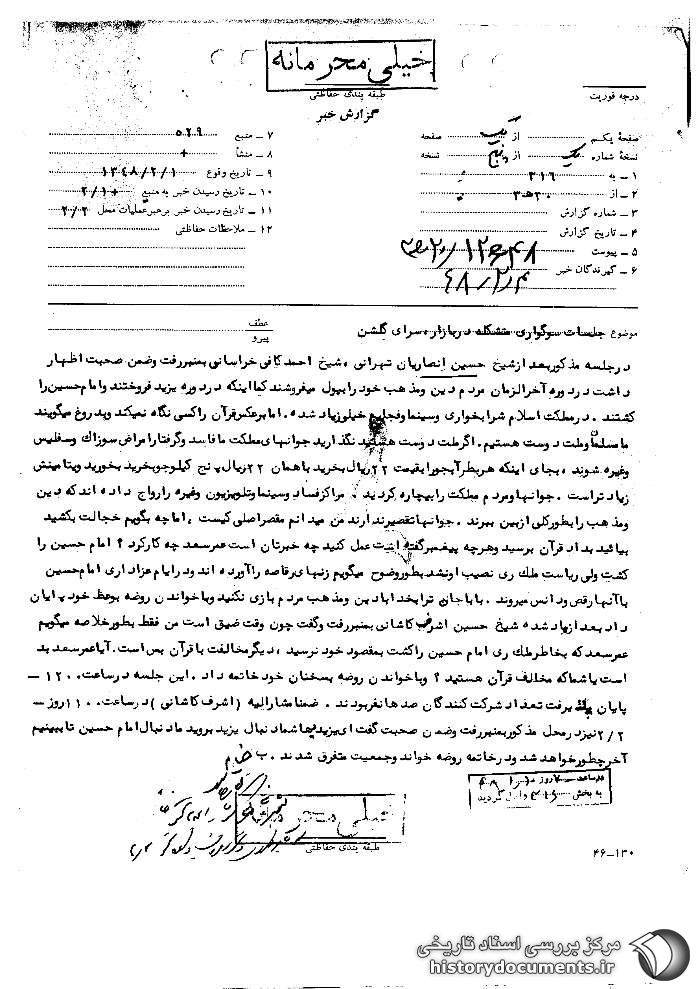 خیلی محرمانه
طبقه بندی حفاظتی
گزارش خبر
درجه فوریت
صفحهٔ یکم از یک صفحه
نسخهٔ شماره یک از پنج نسخه
۱ – به ۳۱۶
۲ – از ۲۰ ه ۳
۳ – شماره گزارش
۴ – تاریخ گزارش
۵ – پیوست
۶ – گیرندگان خبر
۴۸/۲/۴
۷ – منبع ۵۲۹
۸ – منشأ +
۹ – تاریخ وقوع ۱۳۴۸/۲/۱
۱۰ – تاریخ رسیدن خبر به منبع ۲/۱+
۱۱ – تاریخ رسیدن خبر برهبر عملیات محل ۲/۲
۱۲ – ملاحظات حفاظتی
موضوع جلسات سوگواری متشکله در بازار، سرای گلشن
عطف
پیرو
در جلسه مذکور بعد از شیخ حسین انصاریان تهرانی ، شیخ احمد کافی خراسانی بمنبر رفت وضمن صحبت اظهار
داشت در دوره آخرالزمان مردم دین ومذهب خود را بپول میفروشند کما اینکه در دوره یزید فروختند وامام حسین را
کشتند . در مملکت اسلام شرابخواری وسینما وفجایع خیلی زیاد شده . اما برعکس قرآن را کسی نگاه نمیکند وبدروغ میگویند
ما مسلمان وملت دوست هستیم. اگر ملت دوست هستید نگذارید جوانهای مملکت ما فاسد وگرفتار امراض سوزاک وسفلیس
وغیره شوند ، بجای اینکه هر بطر آبجو را بقیمت ۲۲ ریال بخرید با همان ۲۲ ریال پنج کیلو جو بخرید بخورید ویتامینش
زیاد تر است . جوانها ومردم مملکت را بیچاره کردید . مراکز فساد وسینما وتلویزیون وغیره را رواج داده اند که دین
ومذهب را بطور کلی از بین ببرند . جوانها تقصیر ندارند من میدانم مقصر اصلی کیست ، اما چه بگویم خجالت بکشید
بیائید بداد قرآن برسید وهرچه پیغمبر گفته است عمل کنید چه خبرتان است عمر سعد چه کار کرد ؟ امام حسین را
کشت ولی ریاست ملک ری نصیب او نشد بطور وضوح میگویم زنهای رقاصه را آورده اند ودر ایام عزاداری امام حسین
با آنها رقص ودانس میروند . بابا جان ترا بخدا با دین ومذهب مردم بازی نکنید وبا خواندن روضه بوعظ خود پایان
داد بعد از یاد شده شیخ حسین اشرف کاشانی بمنبر رفت وگفت چون وقت ضیق است من فقط بطور خلاصه میگویم
عمر سعد که بخاطر ملک ری امام حسین را کشت بمقصود خود نرسید ، دیگر مخالفت با قرآن بس است. آیا عمر سعد بد
است یا شما که مخالف قرآن هستید ؟ وبا خواندن روضه بسخنان خود خاتمه داد . این جلسه در ساعت ۱۲۰۰
پایان پذیرفت تعداد شرکت کنندگان صدها نفر بودند . ضمنا مشارالیه (اشرف کاشانی) در ساعت ۱۱۰۰ روز
۲/۲ نیز در محل مذکور بمنبر رفت وضمن صحبت گفت ای یزیدیها شما دنبال یزید بروید ما دنبال امام حسین تا ببینیم
آخر چطور خواهد شد ودر خاتمه روضه خواند وجمعیت متفرق شدند .
در ساعت روز
به بخش ۳۱۶ واصل گردید
خیلی محرمانه
طبقه بندی حفاظتی
۴۶–۱۳۰
مرکز بررسی اسناد تاریخی
historydocuments.ir